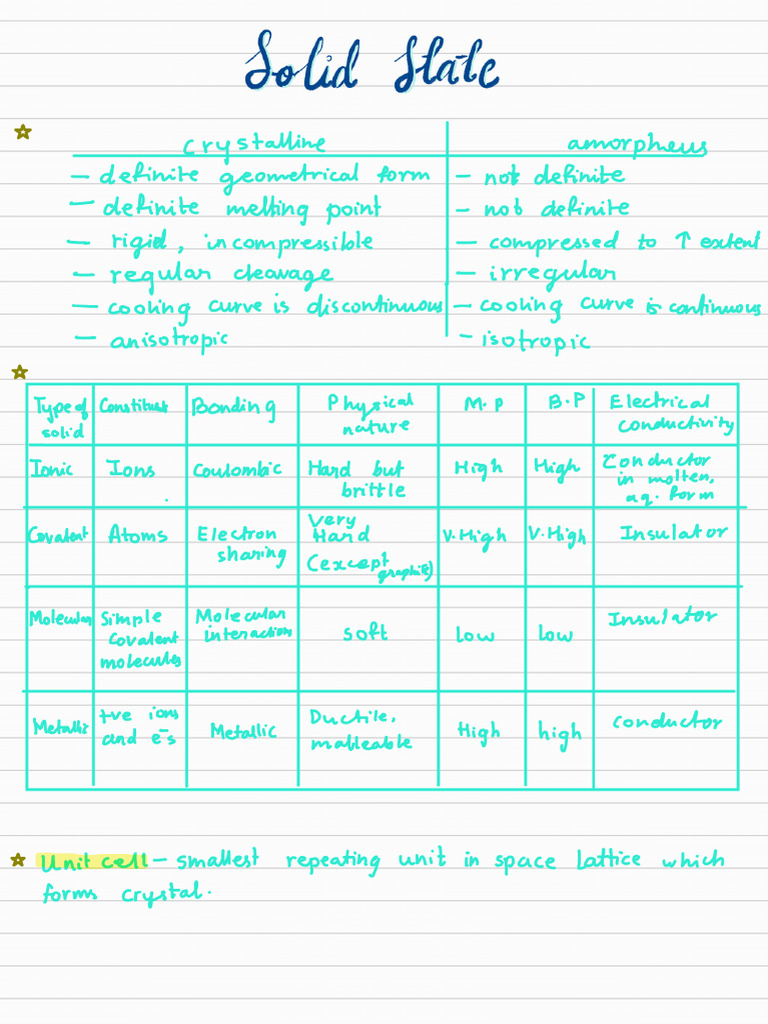 Solid State
crystalline amorpheus
- definite geometrical form - not definite
- definite melting point - not definite
- rigid, incompressible - compressed to ↑ extent
- regular cleavage - irregular
- cooling curve is discontinuous - cooling curve is continuous
- anisotropic - isotropic
Type of solid Constituent Bonding Physical nature M.P B.P Electrical conductivity
Ionic Ions Coulombic Hard but brittle High High Conductor in molten, aq. form
Covalent Atoms Electron sharing Very Hard (except graphite) V.High V.High Insulator
Molecular Simple covalent molecules Molecular interaction soft low low Insulator
Metallic +ve ions and e⁻s Metallic Ductile, malleable High high conductor
Unit cell - smallest repeating unit in space lattice which
forms crystal.